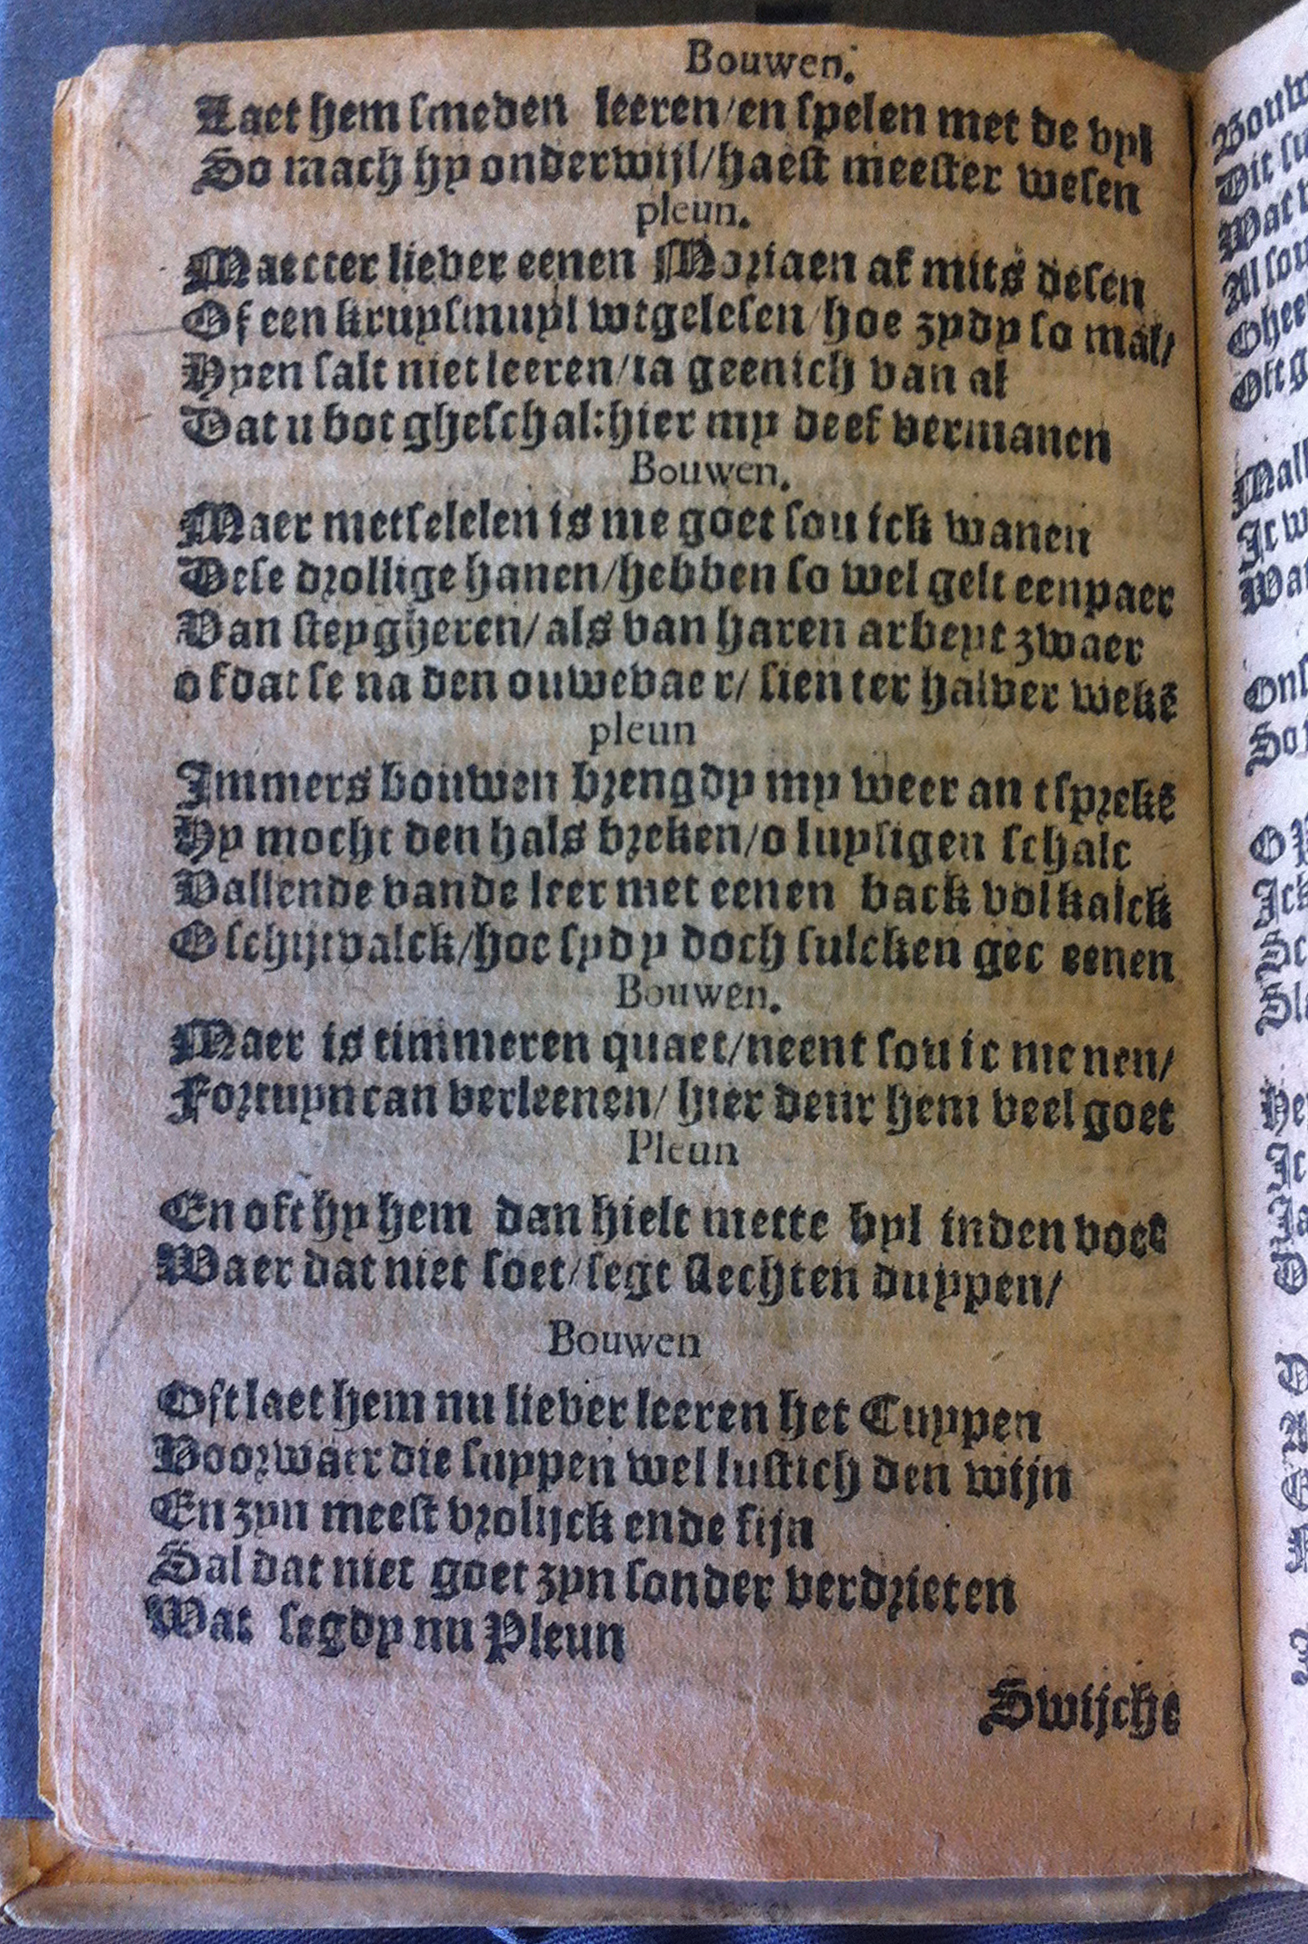 Bouwen.
Laet hem smeden leeren/en spelen met de vyl
So mach hy onderwijl/haest meester wesen
pleun.
Maectter liever eenen Moriaen af mits desen
Of een kruysmuyl wtgelesen/hoe zydy so mal/
Hyen salt niet leeren/ta geenich van al
Dat u bot gheschal:hier my deef vermanen
Bouwen.
Maer metselelen is me goet sou ick wanen
Dese drollige hanen/hebben so wel gelt eenpaer
Van steygheren/als van haren arbeyt zwaer
ofdat se na den ouwevaer/ sien ter halver wekē
pleun
Immers bouwen brengdy my weer an tsprekē
Hy mocht den hals breken/o luysigen schalc
Vallende vande leer met eenen back vol kalck
O schijtvalck/hoe sydy doch sulcken gec eenen
Bouwen.
Maer is timmeren quaet/neent sou ic menen/
Fortuyn can verleenen/ hier deur hem veel goet
Pleun
En oft hy hem dan hielt mette byl inden voet
Waer dat niet soet/segt slechten duypen/
Bouwen
Oft laet hem nu liever leeren het Cuypen
Voorwaer die suypen wel lustich den wijn
En zyn meest vrolijck ende fijn
Sal dat niet goet zyn sonder verdrieten
Wat segdy nu Pleun
Swijcht